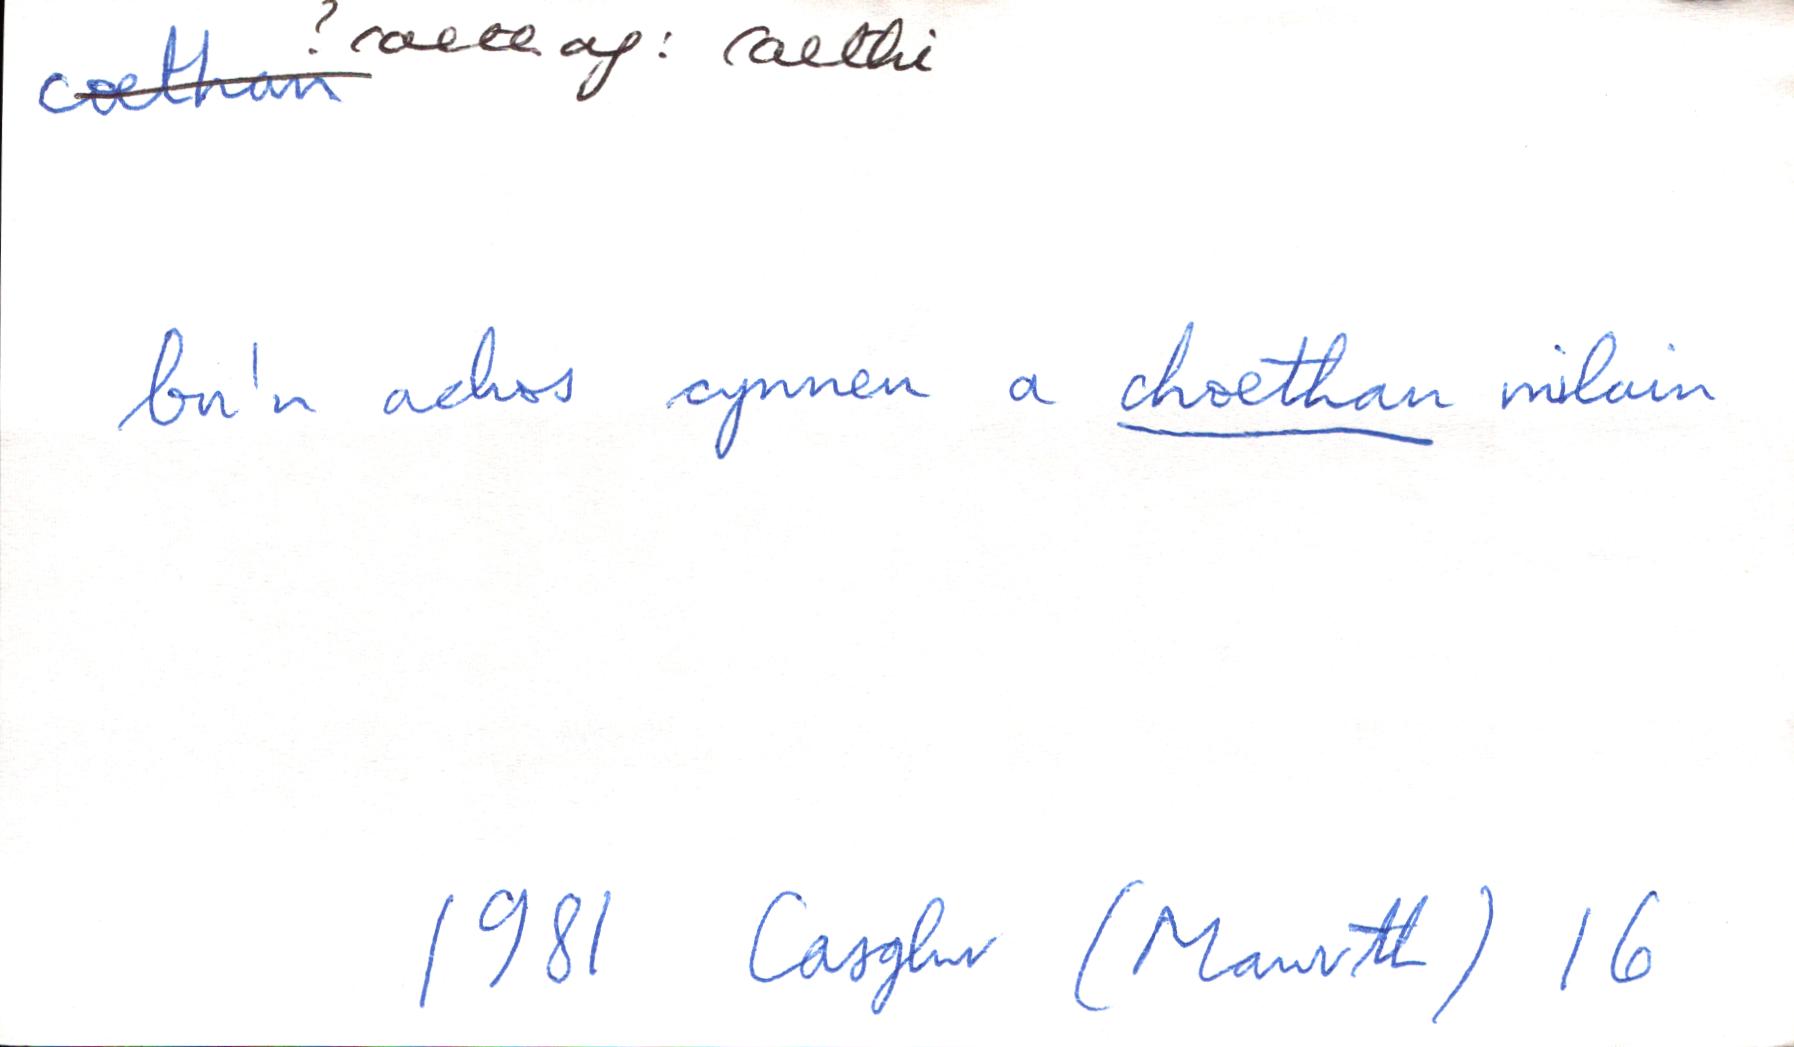 coethan ? coethi
bu'n achos cynnen a choethan milain
1981 Casglwr (Mawrth) 16